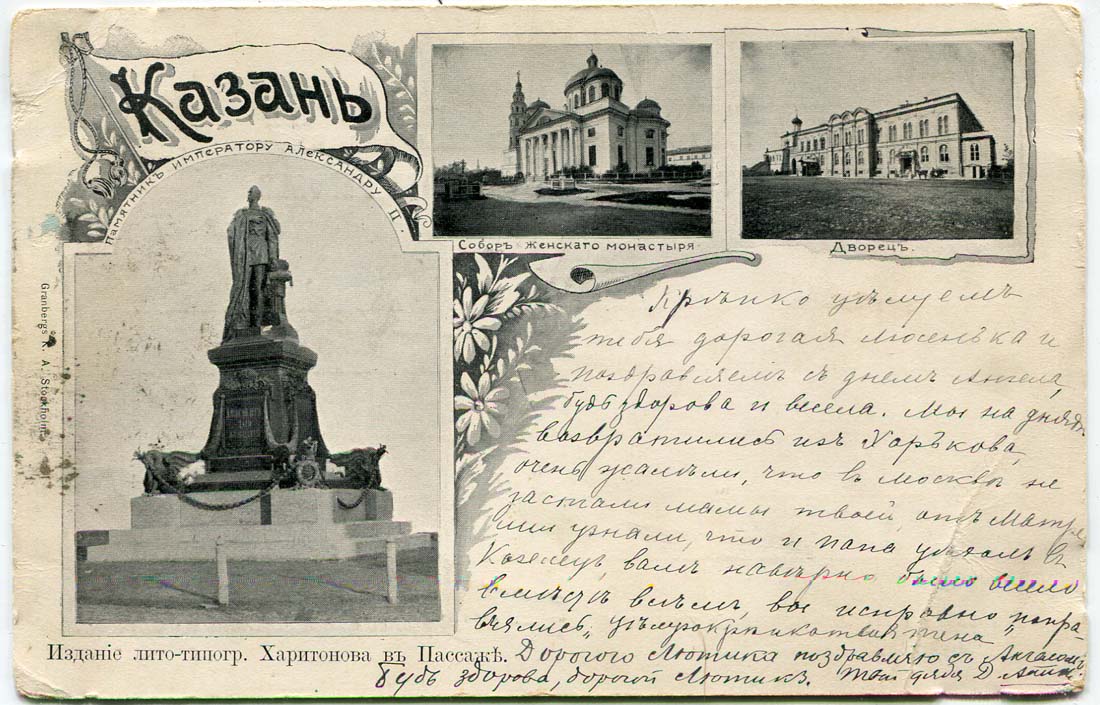 Казань
Памятникъ Императору Александру II.
Соборъ Женскаго монастыря
Дворецъ.
Granbergs K. A. Stockholm
Крѣпко цѣлуемъ
тебя дорогая Люсенька и
поздравляемъ съ днемъ Ангела,
будь здорова и весела. Мы на дняхъ
возвратились изъ Харькова,
очень жалѣли, что въ Москвѣ не
застали мамы твоей, отъ
узнали, что и папа уѣхалъ въ
вамъ навѣрно было весело
всѣмъ, вы исправно
Изданіе лито-типогр. Харитонова въ Пассажѣ.
Дорогого Лютика поздравляю съ Ангеломъ.
Будь здорова, дорогой Лютикъ. Твой дядя Д.